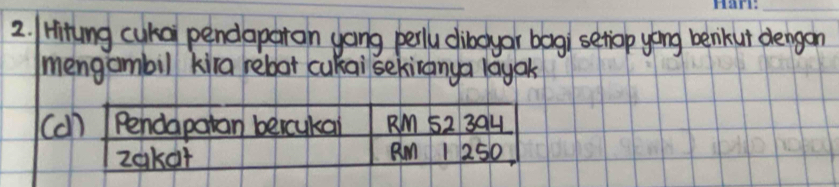 Hari:
2. Hitung cukai pendapatan yang perlu dibayar bagi setiap yang berikut dengan
mengambil kira rebat cukai sekiranya layak
(d) Pendapatan bercukai RM 52 394
zakat RM 1 250